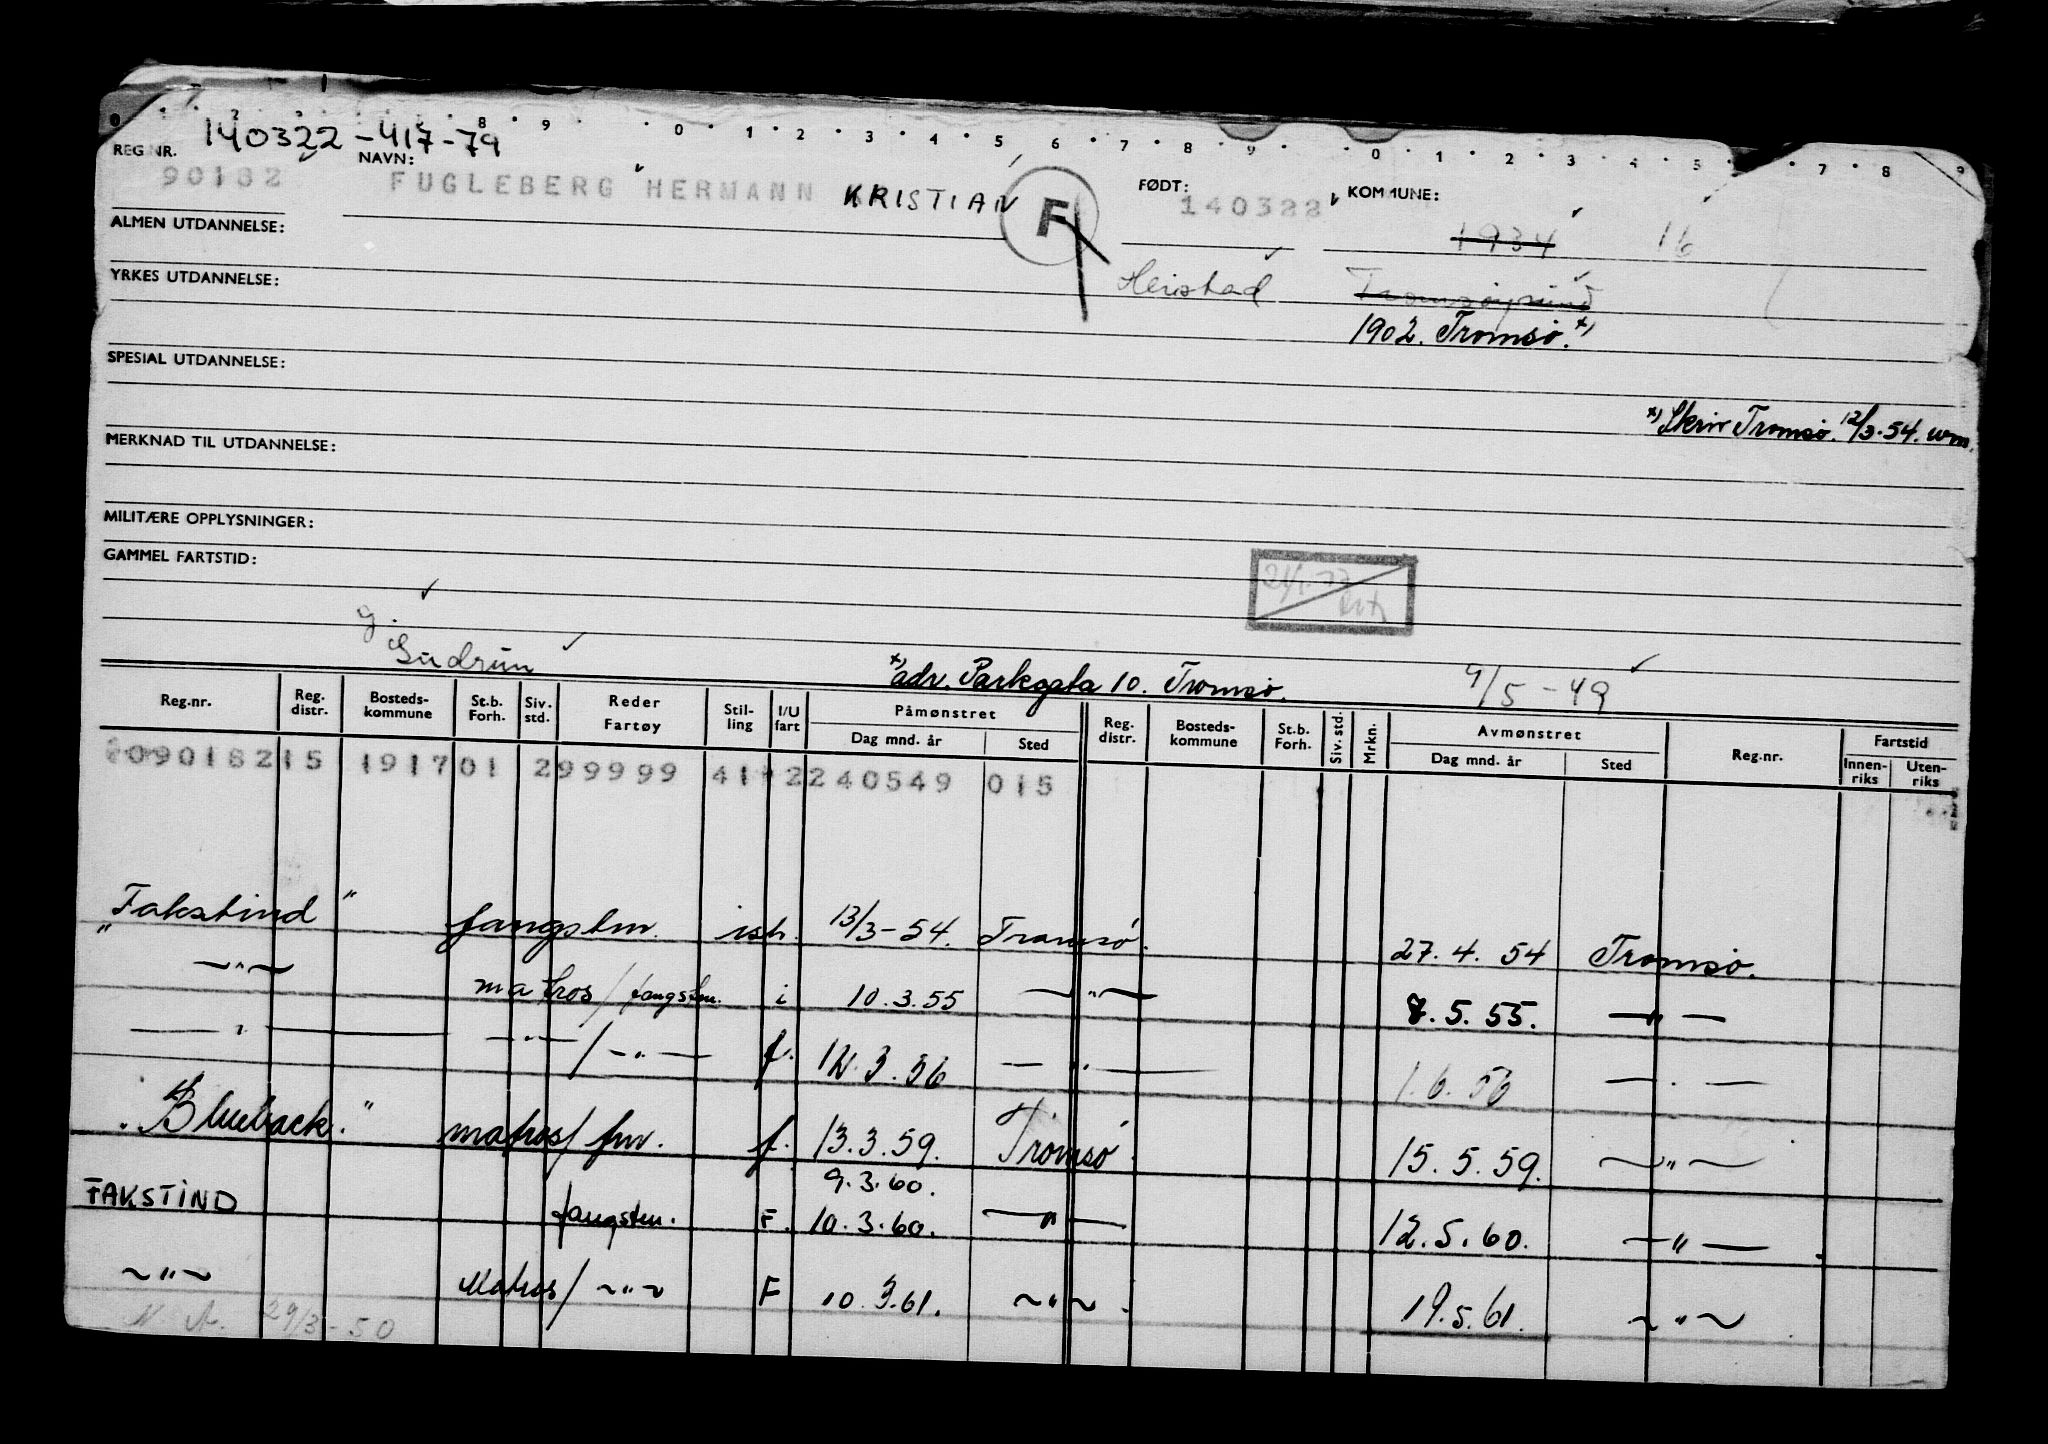 0 1 2 3 8 9 0 1 2 3 4 5 6 7 8 9 0 1 2 3 4 5 7 8 9
140322-417-79
REG.NR. NAVN: FØDT: KOMMUNE:
90182 FUGLEBERG HERMANN KRISTIAN F 140322
ALMEN UTDANNELSE: 1934 16
YRKES UTDANNELSE: Heistad Tromsøysund
1902. Tromsø. x)
SPESIAL UTDANNELSE:
x) Skriv Tromsø. 12/3.54. wm.
MERKNAD TIL UTDANNELSE:
MILITÆRE OPPLYSNINGER:
GAMMEL FARTSTID:
21/1-77
g.
Gudrun x) adr. Parkgata 10. Tromsø. 9/5-49
Reg.nr. Reg. distr. Bosteds-kommune St.b. Forh. Siv. std. Reder Fartøy Stil-ling I/U fart Påmønstret Dag mnd. år Sted Reg. distr. Bosteds-kommune St.b. Forh. Siv. std. Mrkn. Avmønstret Dag mnd. år Sted Reg.nr. Fartstid Innen-riks Uten-riks
09018215 191701 299999 411 2240549 015
"Fakstind" fangstm. ish. 13/3-54. Tromsø. 27.4.54 Tromsø.
—"— matros/fangstm. i 10.3.55 —"— 8.5.55. —"—
—"— —"—/—"— f. 12.3.56 —"— 1.6.56 —"—
"Blueback." matros/fm. f. 13.3.59. Tromsø. 15.5.59. —"—
9.3.60.
FAKSTIND fangstm. F. 10.3.60. —"— 12.5.60. —"—
—"— Matros/—"— F 10.3.61. —"— 19.5.61. —"—
N. A. 29/3-50